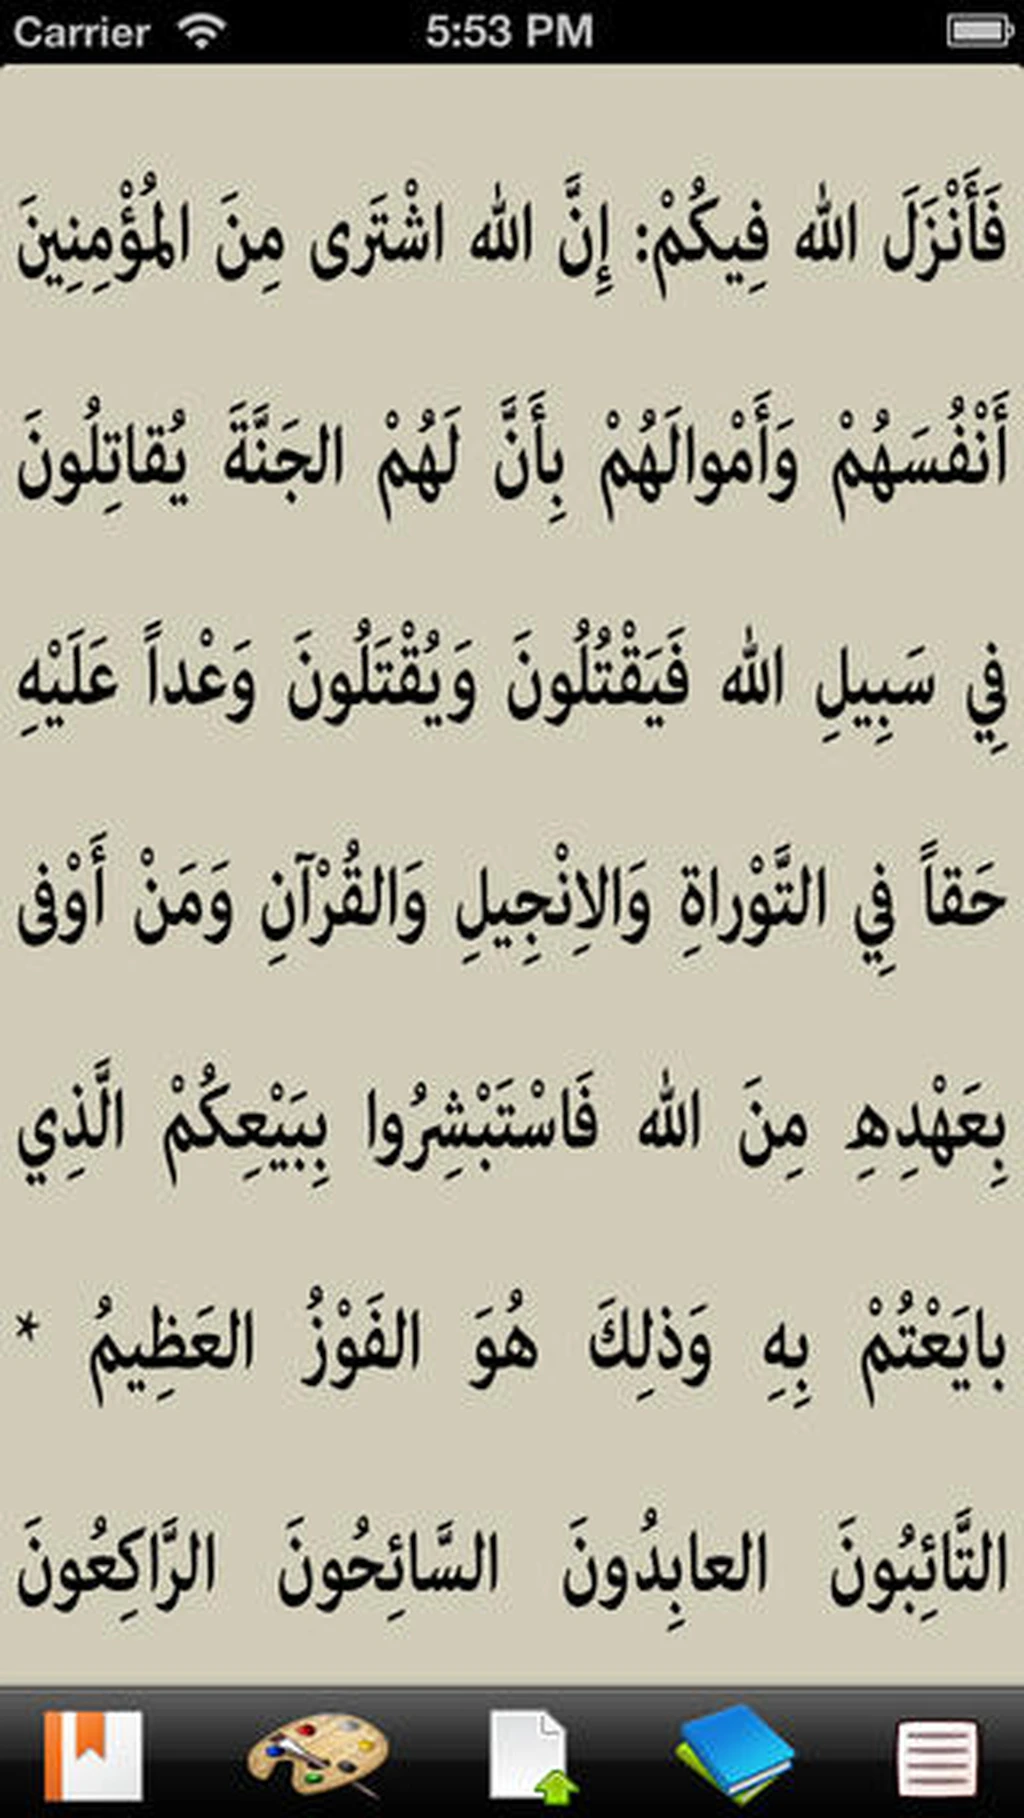 Carrier 5:53 PM
فَأَنْزَلَ الله فِيكُمْ: إِنَّ الله اشْتَرى مِنَ المُؤْمِنِينَ
أَنْفُسَهُمْ وَأَمْوالَهُمْ بِأَنَّ لَهُمْ الجَنَّةَ يُقاتِلُونَ
فِي سَبِيلِ الله فَيَقْتُلُونَ وَيُقْتَلُونَ وَعْداً عَلَيْهِ
حَقاً فِي التَّوْراةِ وَالاِنْجِيلِ وَالقُرْآنِ وَمَنْ أَوْفى
بِعَهْدِهِ مِنَ الله فَاسْتَبْشِرُوا بِبَيْعِكُمْ الَّذِي
بايَعْتُمْ بِهِ وَذلِكَ هُوَ الفَوْزُ العَظِيمُ *
التَّائِبُونَ العابِدُونَ السَّائِحُونَ الرَّاكِعُونَ